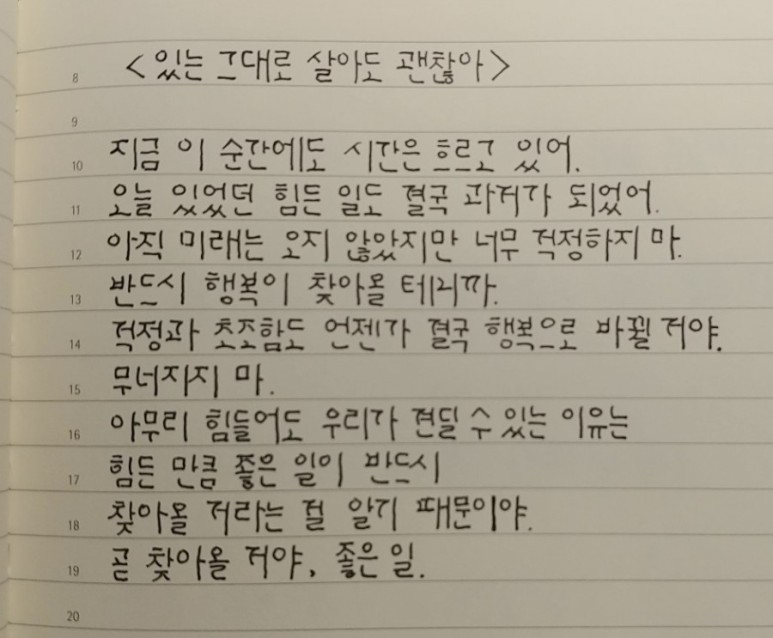 8 <있는 그대로 살아도 괜찮아>
9
10 지금 이 순간에도 시간은 흐르고 있어.
11 오늘 있었던 힘든 일도 결국 과거가 되었어.
12 아직 미래는 오지 않았지만 너무 걱정하지 마.
13 반드시 행복이 찾아올 테니까.
14 걱정과 초조함도 언젠가 결국 행복으로 바뀔 거야.
15 무너지지 마.
16 아무리 힘들어도 우리가 견딜 수 있는 이유는
17 힘든 만큼 좋은 일이 반드시
18 찾아올 거라는 걸 알기 때문이야.
19 곧 찾아올 거야, 좋은 일.
20